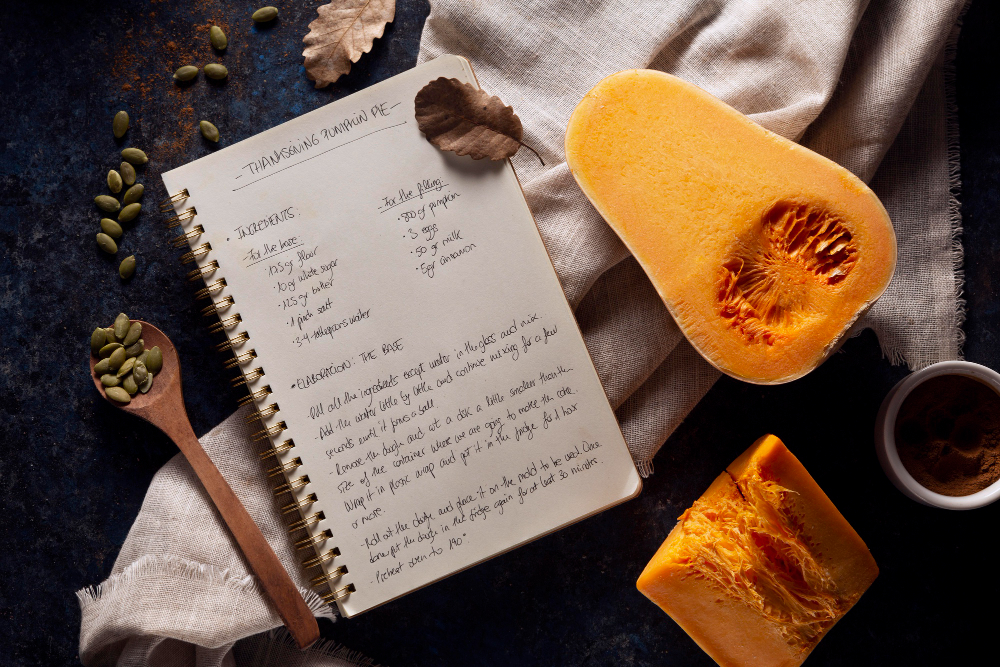 - THANKSGIVING PUMPKIN PIE -
• INGREDIENTS:
-For the base:
• 175 gr flour
• 10 gr white sugar
• 125 gr butter
• 1 pinch salt
• 3-4 teaspoons water
-For the filling:
• 800 gr pumpkin
• 3 eggs
• 50 gr milk
• 5 gr cinnamon
• ELABORATION: THE BASE
- Add all the ingredients except water in the glass and mix.
- Add the water little by little and continue mixing for a few
seconds until it forms a ball.
- Remove the dough and cut a disc a little smaller than the
size of the container where we are going to make the cake.
Wrap it in plastic wrap and put it in the fridge for 1 hour
or more.
- Roll out the dough and place it on the mold to be used. Once
done put the dough in the fridge again for at least 30 minutes.
- Preheat oven to 190°